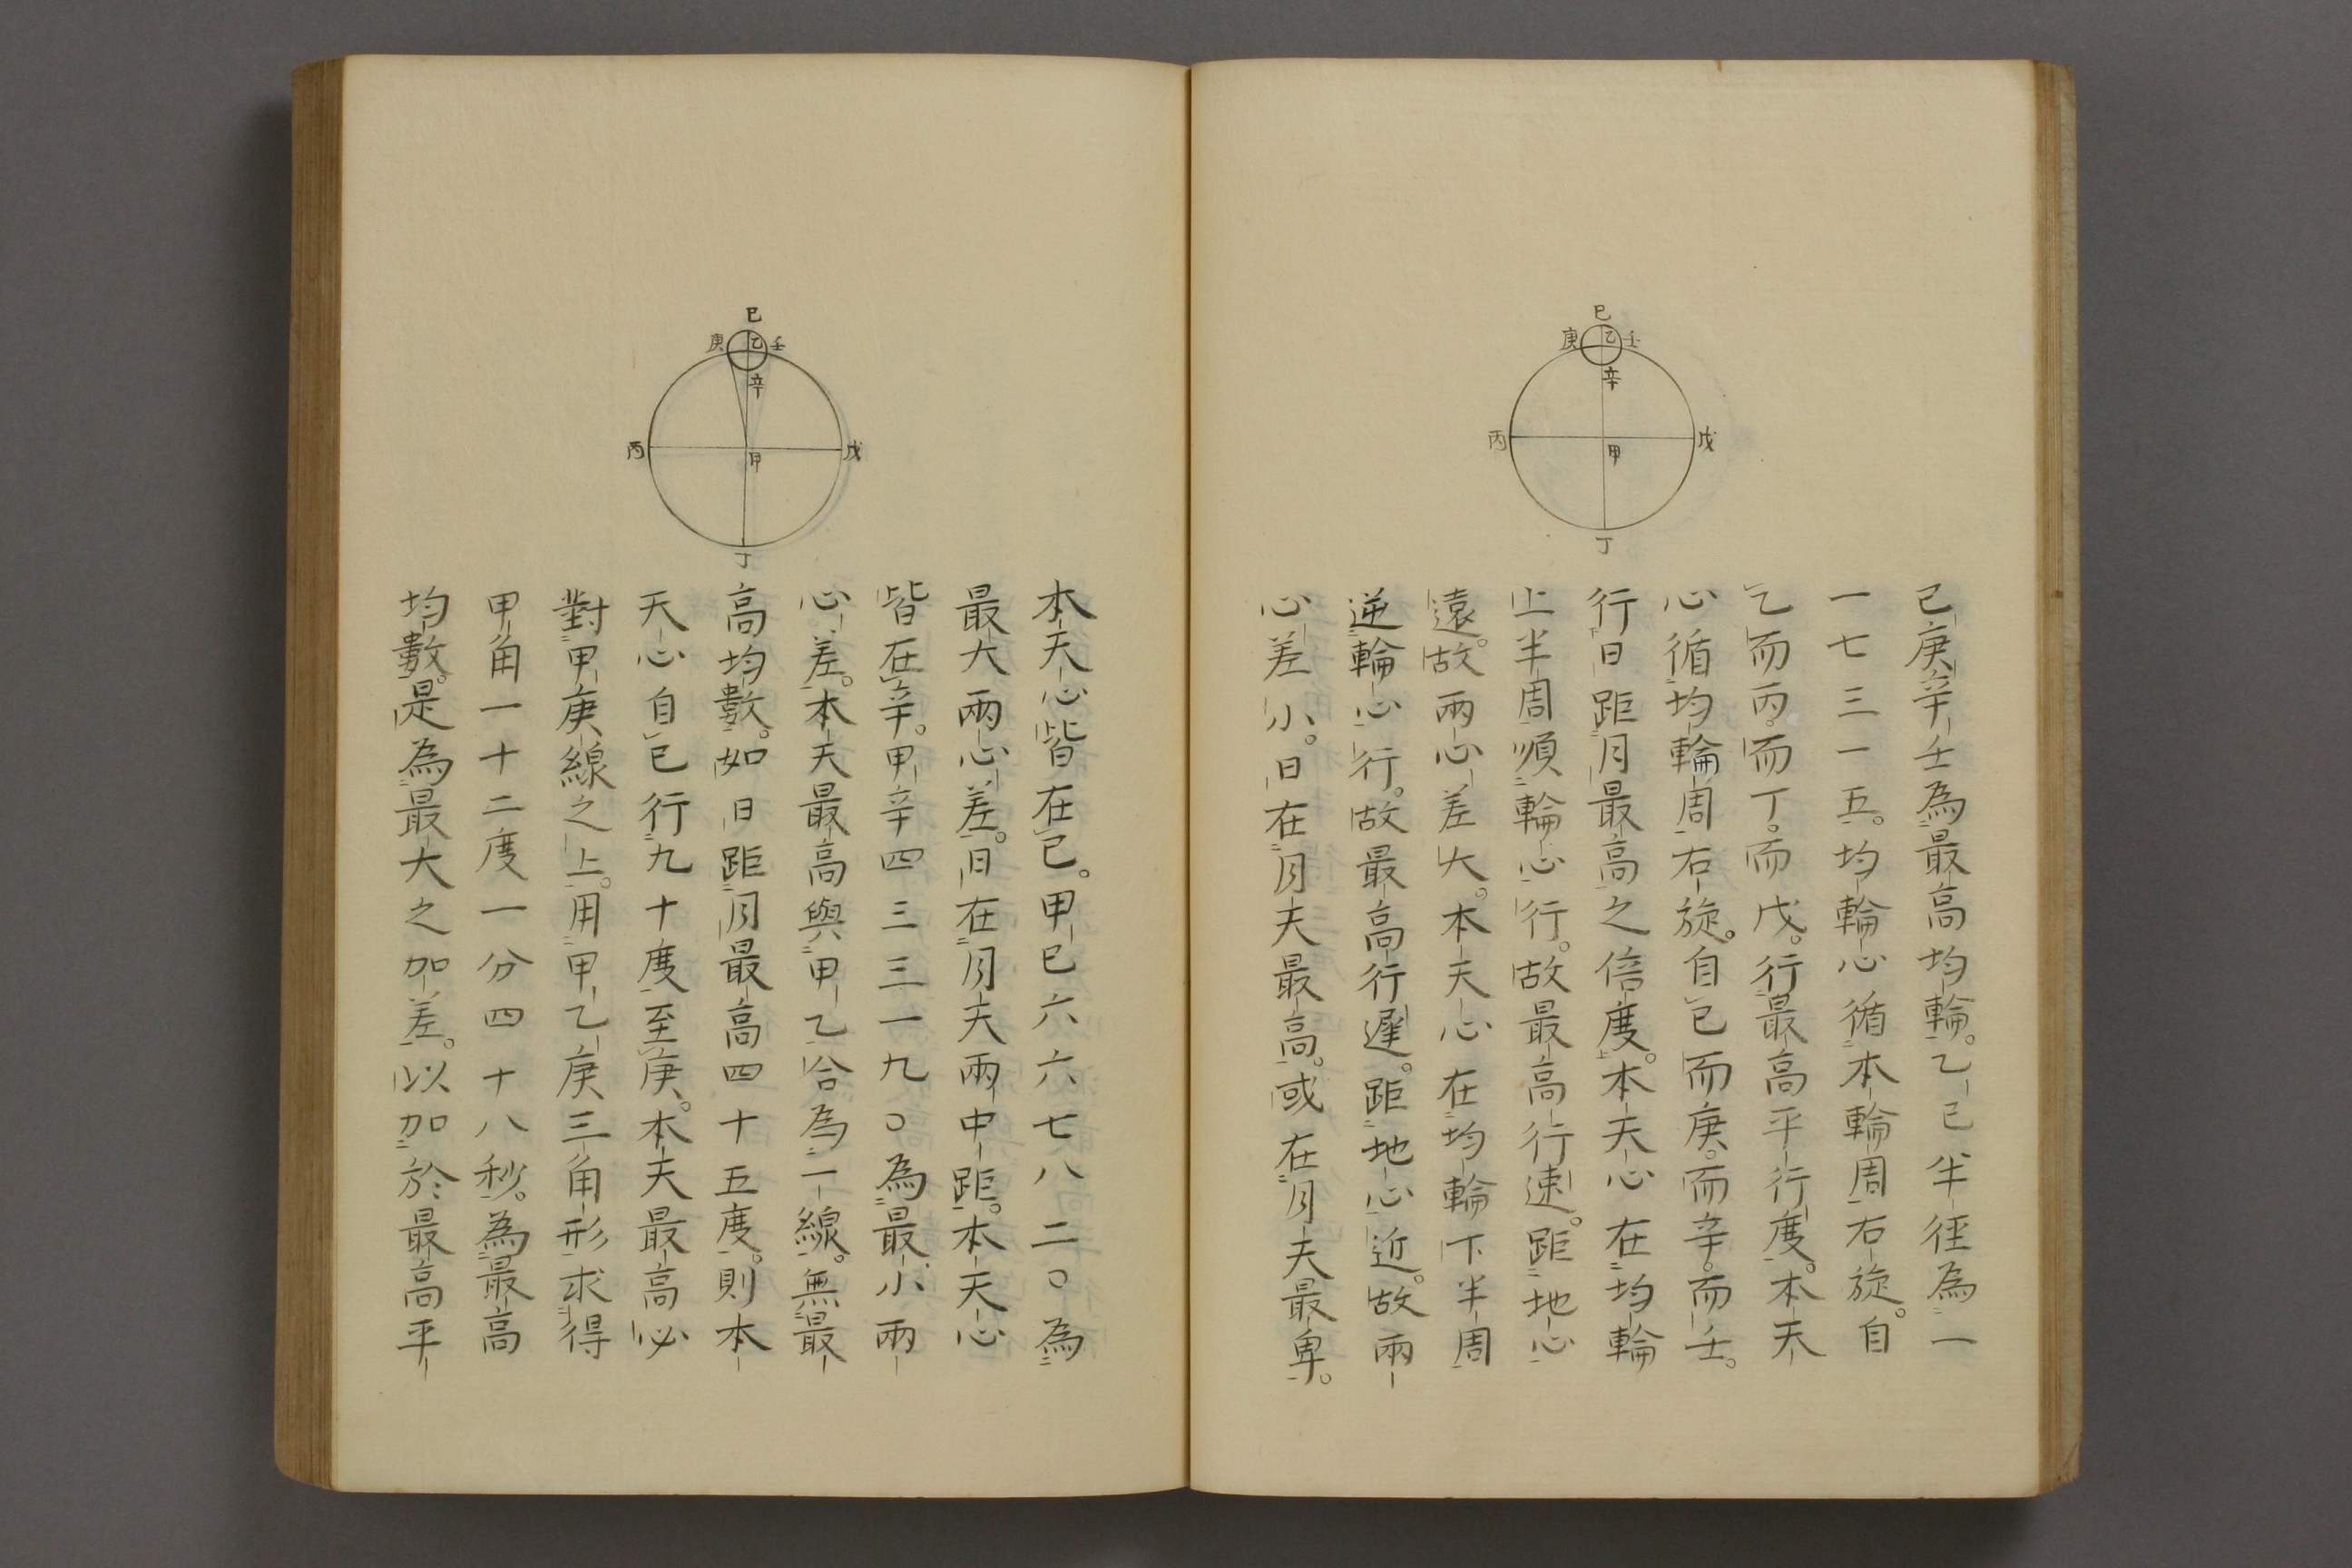 巳
庚
乙
壬
辛
丙
甲
戊
丁
己庚辛壬為最高均輪。乙己半徑為一
一七三一五。均輪心循本輪周右旋。自
乙而丙。而丁。而戊。行最高平行度。本天
心循均輪周右旋。自己而庚。而辛。而壬。
行日距月最高之倍度。本天心在均輪
上半周順輪心行。故最高行速。距地心
遠。故兩心差大。本天心在均輪下半周
逆輪心行。故最高行遲。距地心近。故兩
心差小。日在月天最高。或在月天最卑。
巳
庚
乙
壬
辛
丙
甲
戊
丁
本天心皆在已。甲巳六六七八二〇為
最大兩心差。日在月天兩中距。本天心
皆在辛。甲辛四三三一九〇為最小兩
心差。本天最高與甲乙合為一線。無最
高均數。如日距月最高四十五度。則本
天心自已行九十度至庚。本天最高必
對甲庚線之上。用甲乙庚三角形求得
甲角一十二度一分四十八秒。為最高
均數。是為最大之加差。以加於最高平